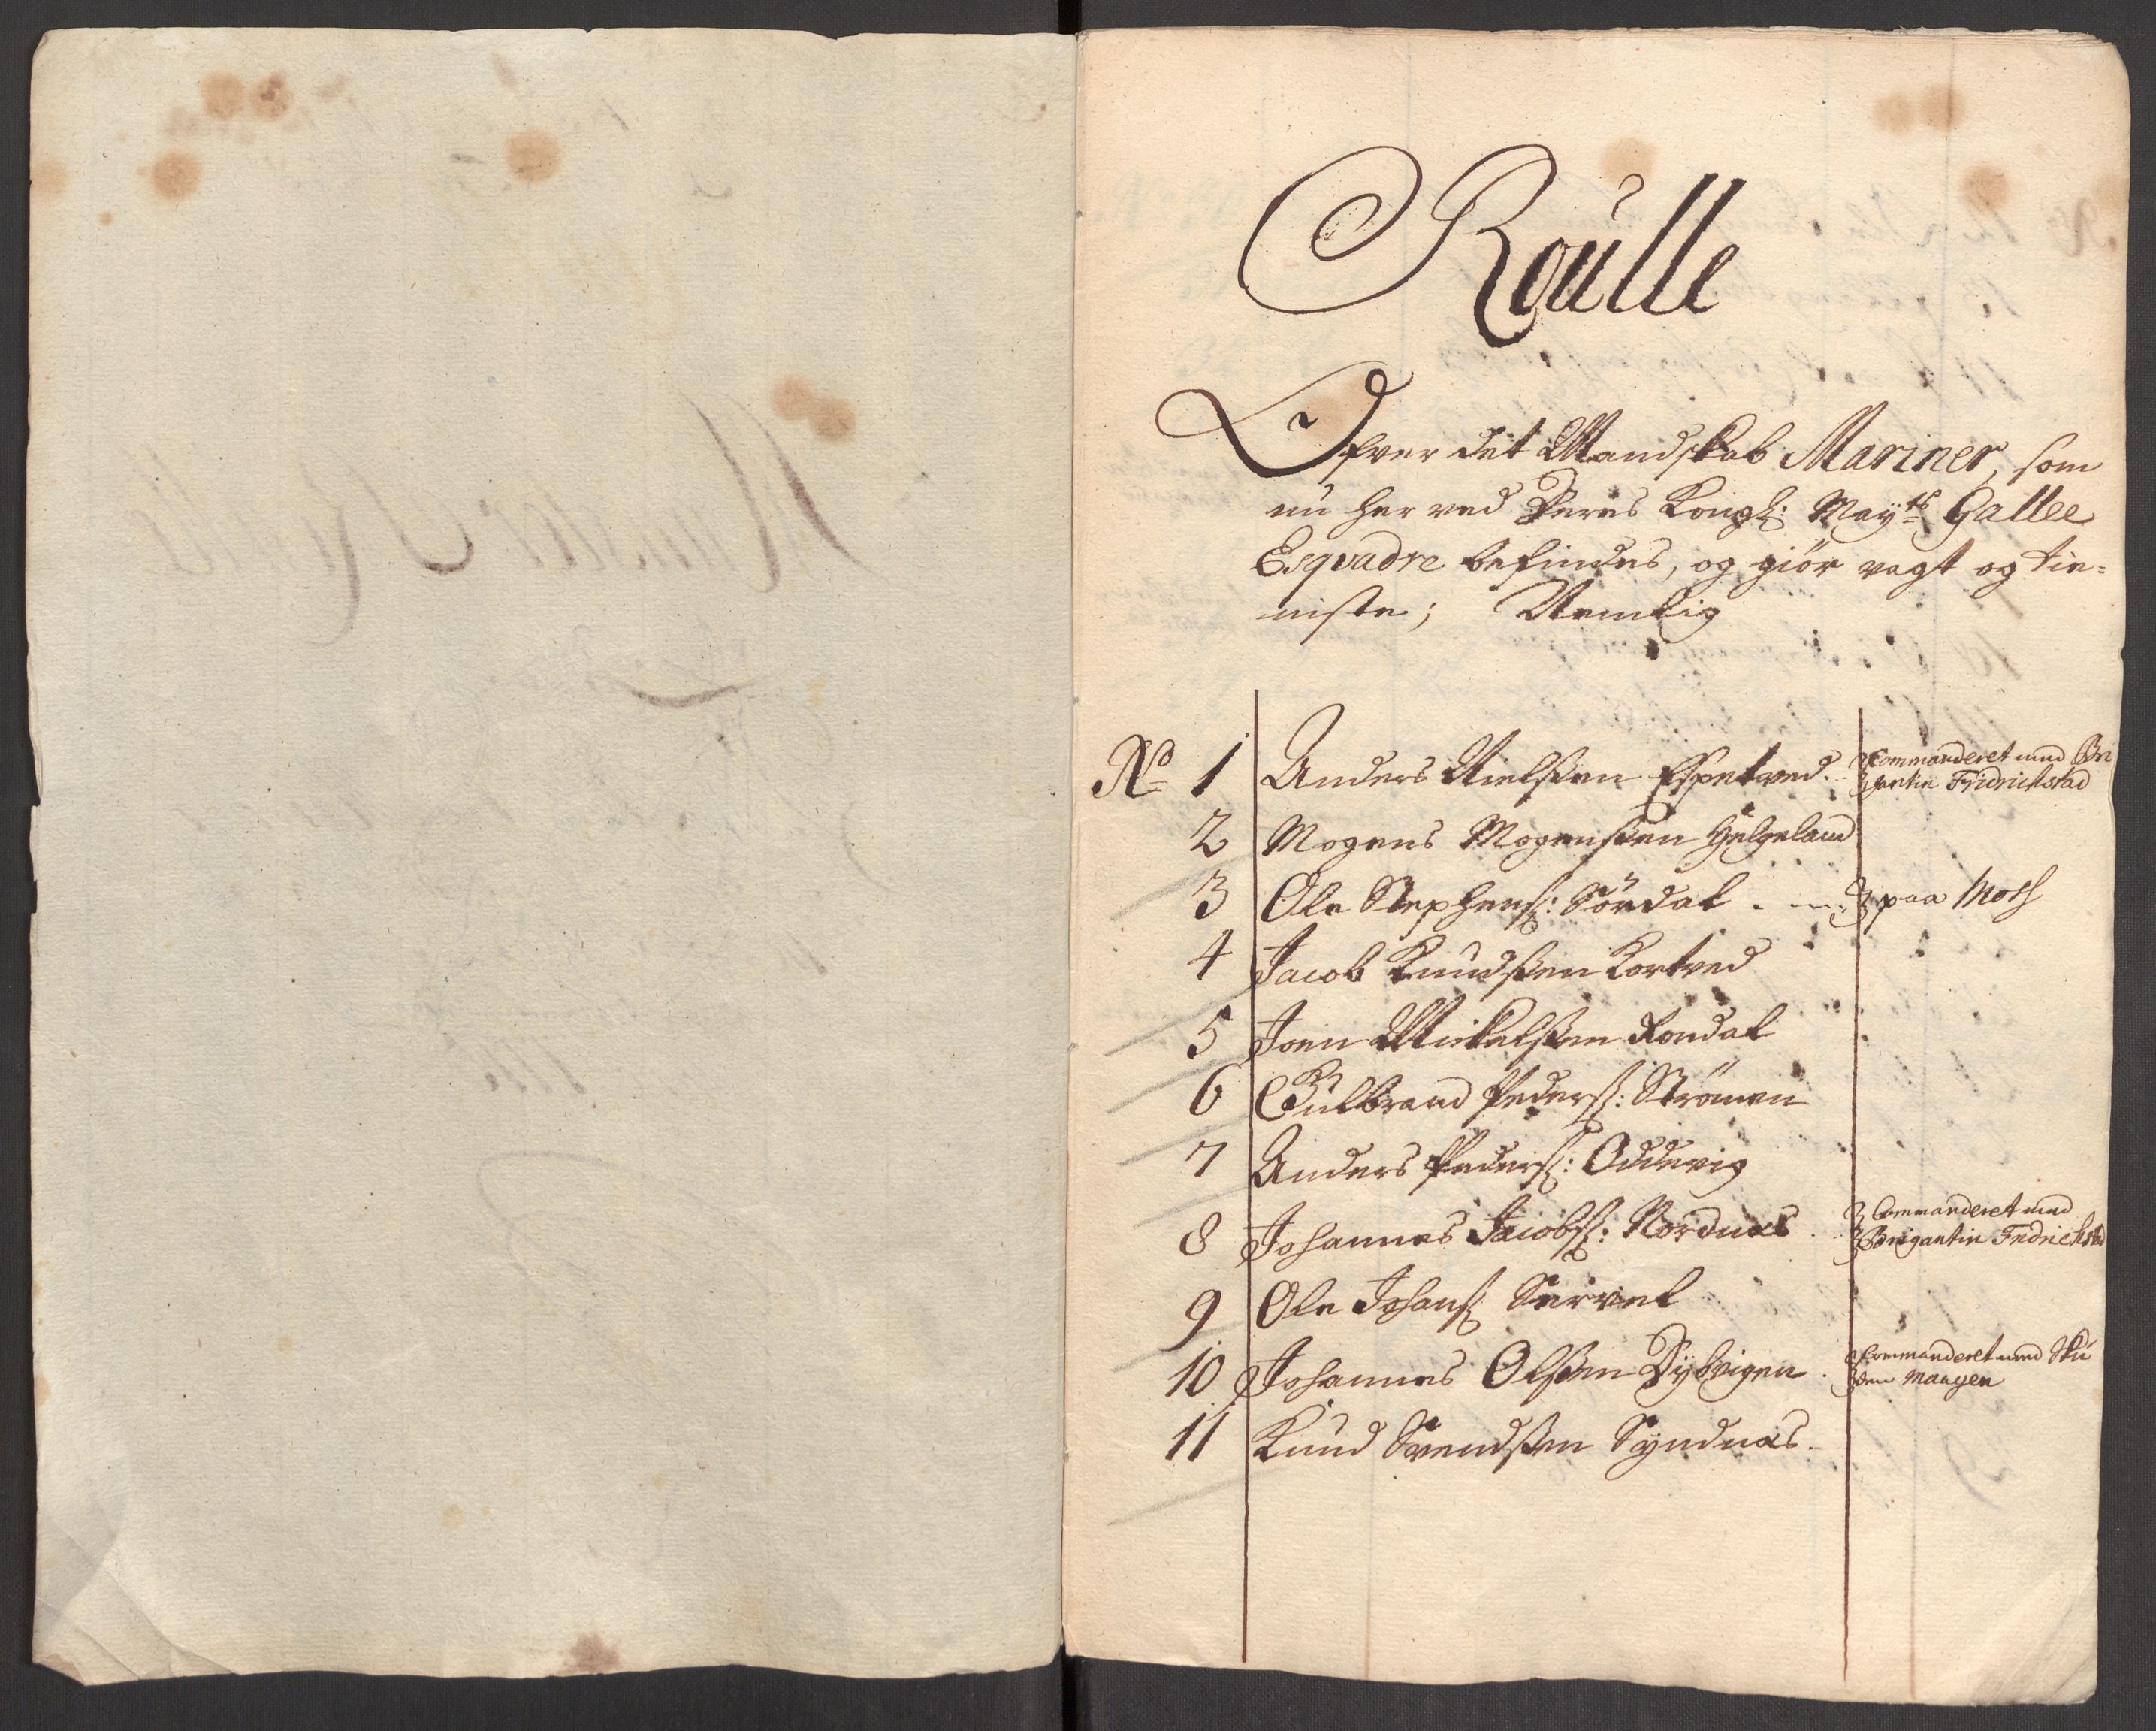 Roulle
Ofver det Mandskab Mariner, som
nu her ved Deres Kongl: Mayts Gallee
Esqvadre befindes, og giör vagt og tie=
niste; Nemlig
No 1 Anders Nielsen Espetved. Commanderet med Bri
gantin Fridrichstad
2 Mogens Mogensen Helgeland
3 Ole Stephens: Sördal. paa Moss
4 Jacob Knudsen Kortved
5 Joen Mickelsen Rondal
6 Gulbrand Peders: Strömen
7 Anders Peders: Oddevig
8 Johannes Jacobs: Nordnæs Commanderet med
Brigantin Fridrichstad
9 Ole Johans:
10 Johannes Olsen Dybvigen. Commanderet med Sku
den Maagen
11 Knud Svendsen Syndnæs.